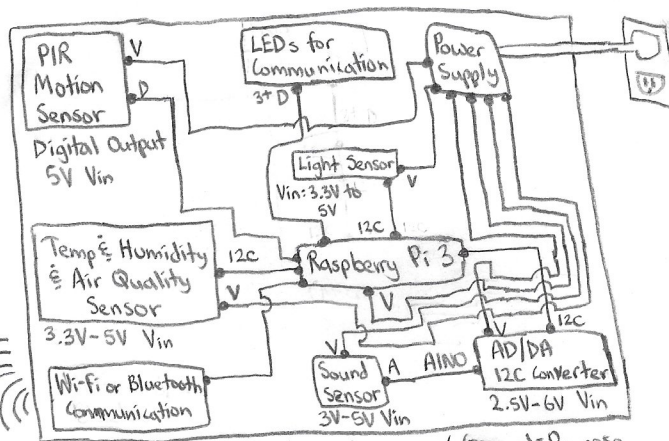 PIR
Motion
Sensor
V
D
Digital Output
5V Vin
LEDs for
Communication
3+ D
Power
Supply
Light Sensor
V
Vin: 3.3V to
5V
I2C
Temp & Humidity
& Air Quality
Sensor
I2C
V
3.3V-5V Vin
Raspberry Pi 3
V
Wi-Fi or Bluetooth
Communication
V
Sound
Sensor
A
AIN0
3V-5V Vin
V
I2C
AD/DA
I2C Converter
2.5V-6V Vin